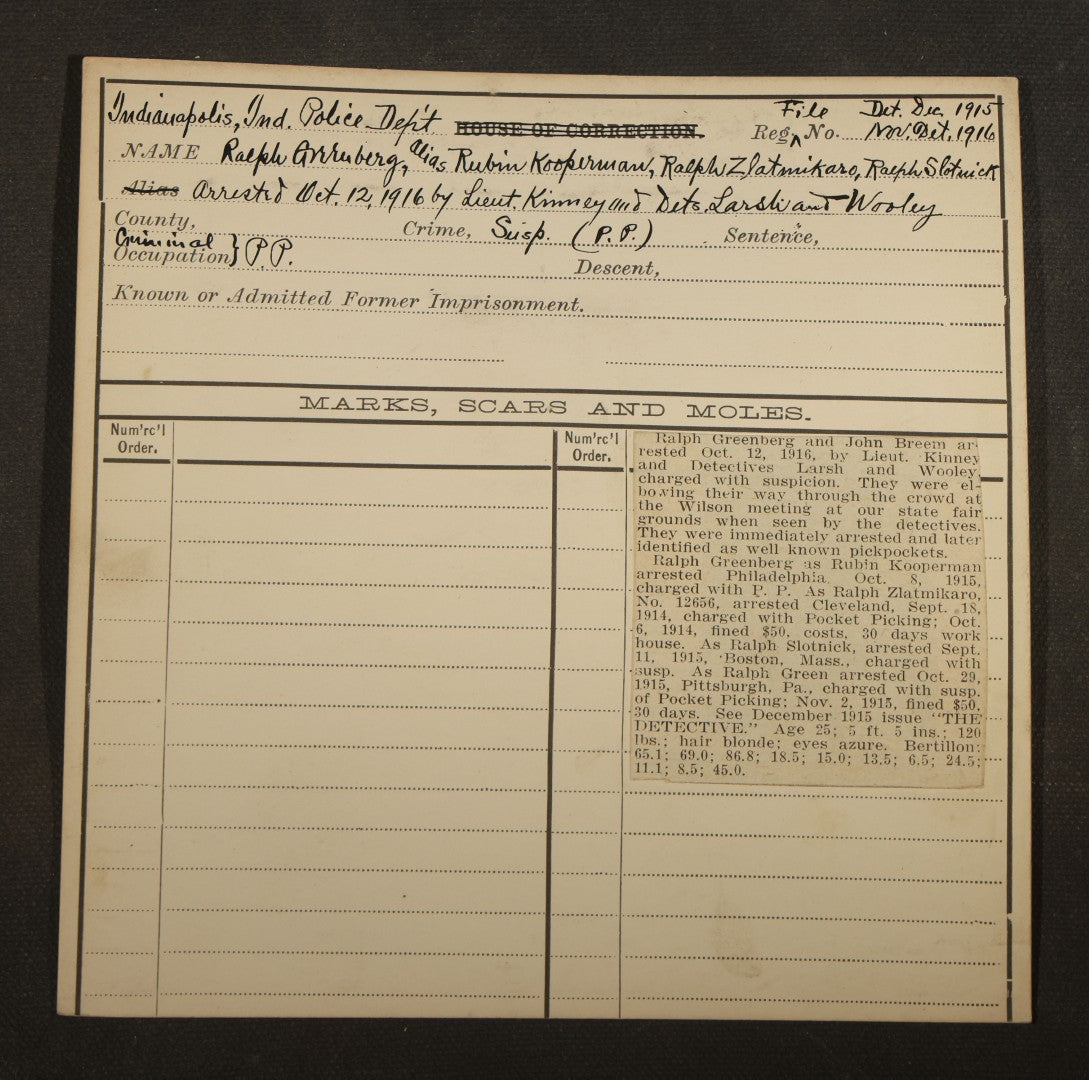 File Det. Dec. 1915
Indianapolis, Ind. Police Dep't HOUSE OF CORRECTION. Reg. No. Nov. Det. 1916
NAME Ralph Greenberg, alias Rubin Kooperman, Ralph Zlatmikaro, Ralph Slotnick
Alias Arrested Oct. 12, 1916 by Lieut. Kinney and Dets. Larsh and Wooley
County, Crime, Susp. (P.P.) Sentence,
Criminal
Occupation} P.P. Descent,
Known or Admitted Former Imprisonment.
MARKS, SCARS AND MOLES.
Num'rc'l
Order.
Num'rc'l
Order.
Ralph Greenberg and John Breem ar-
rested Oct. 12, 1916, by Lieut. Kinney
and Detectives Larsh and Wooley,
charged with suspicion. They were el-
bowing their way through the crowd at
the Wilson meeting at our state fair
grounds when seen by the detectives.
They were immediately arrested and later
identified as well known pickpockets.
Ralph Greenberg as Rubin Kooperman
arrested Philadelphia Oct. 8, 1915,
charged with P. P. As Ralph Zlatmikaro,
No. 12656, arrested Cleveland, Sept. 18,
1914, charged with Pocket Picking; Oct.
6, 1914, fined $50, costs, 30 days work
house. As Ralph Slotnick, arrested Sept.
11, 1915, Boston, Mass., charged with
susp. As Ralph Green arrested Oct. 29,
1915, Pittsburgh, Pa., charged with susp.
of Pocket Picking; Nov. 2, 1915, fined $50,
30 days. See December 1915 issue "THE
DETECTIVE." Age 25; 5 ft. 5 ins.; 120
lbs.; hair blonde; eyes azure. Bertillon:
65.1; 69.0; 86.8; 18.5; 15.0; 13.5; 6.5; 24.5;
11.1; 8.5; 45.0.